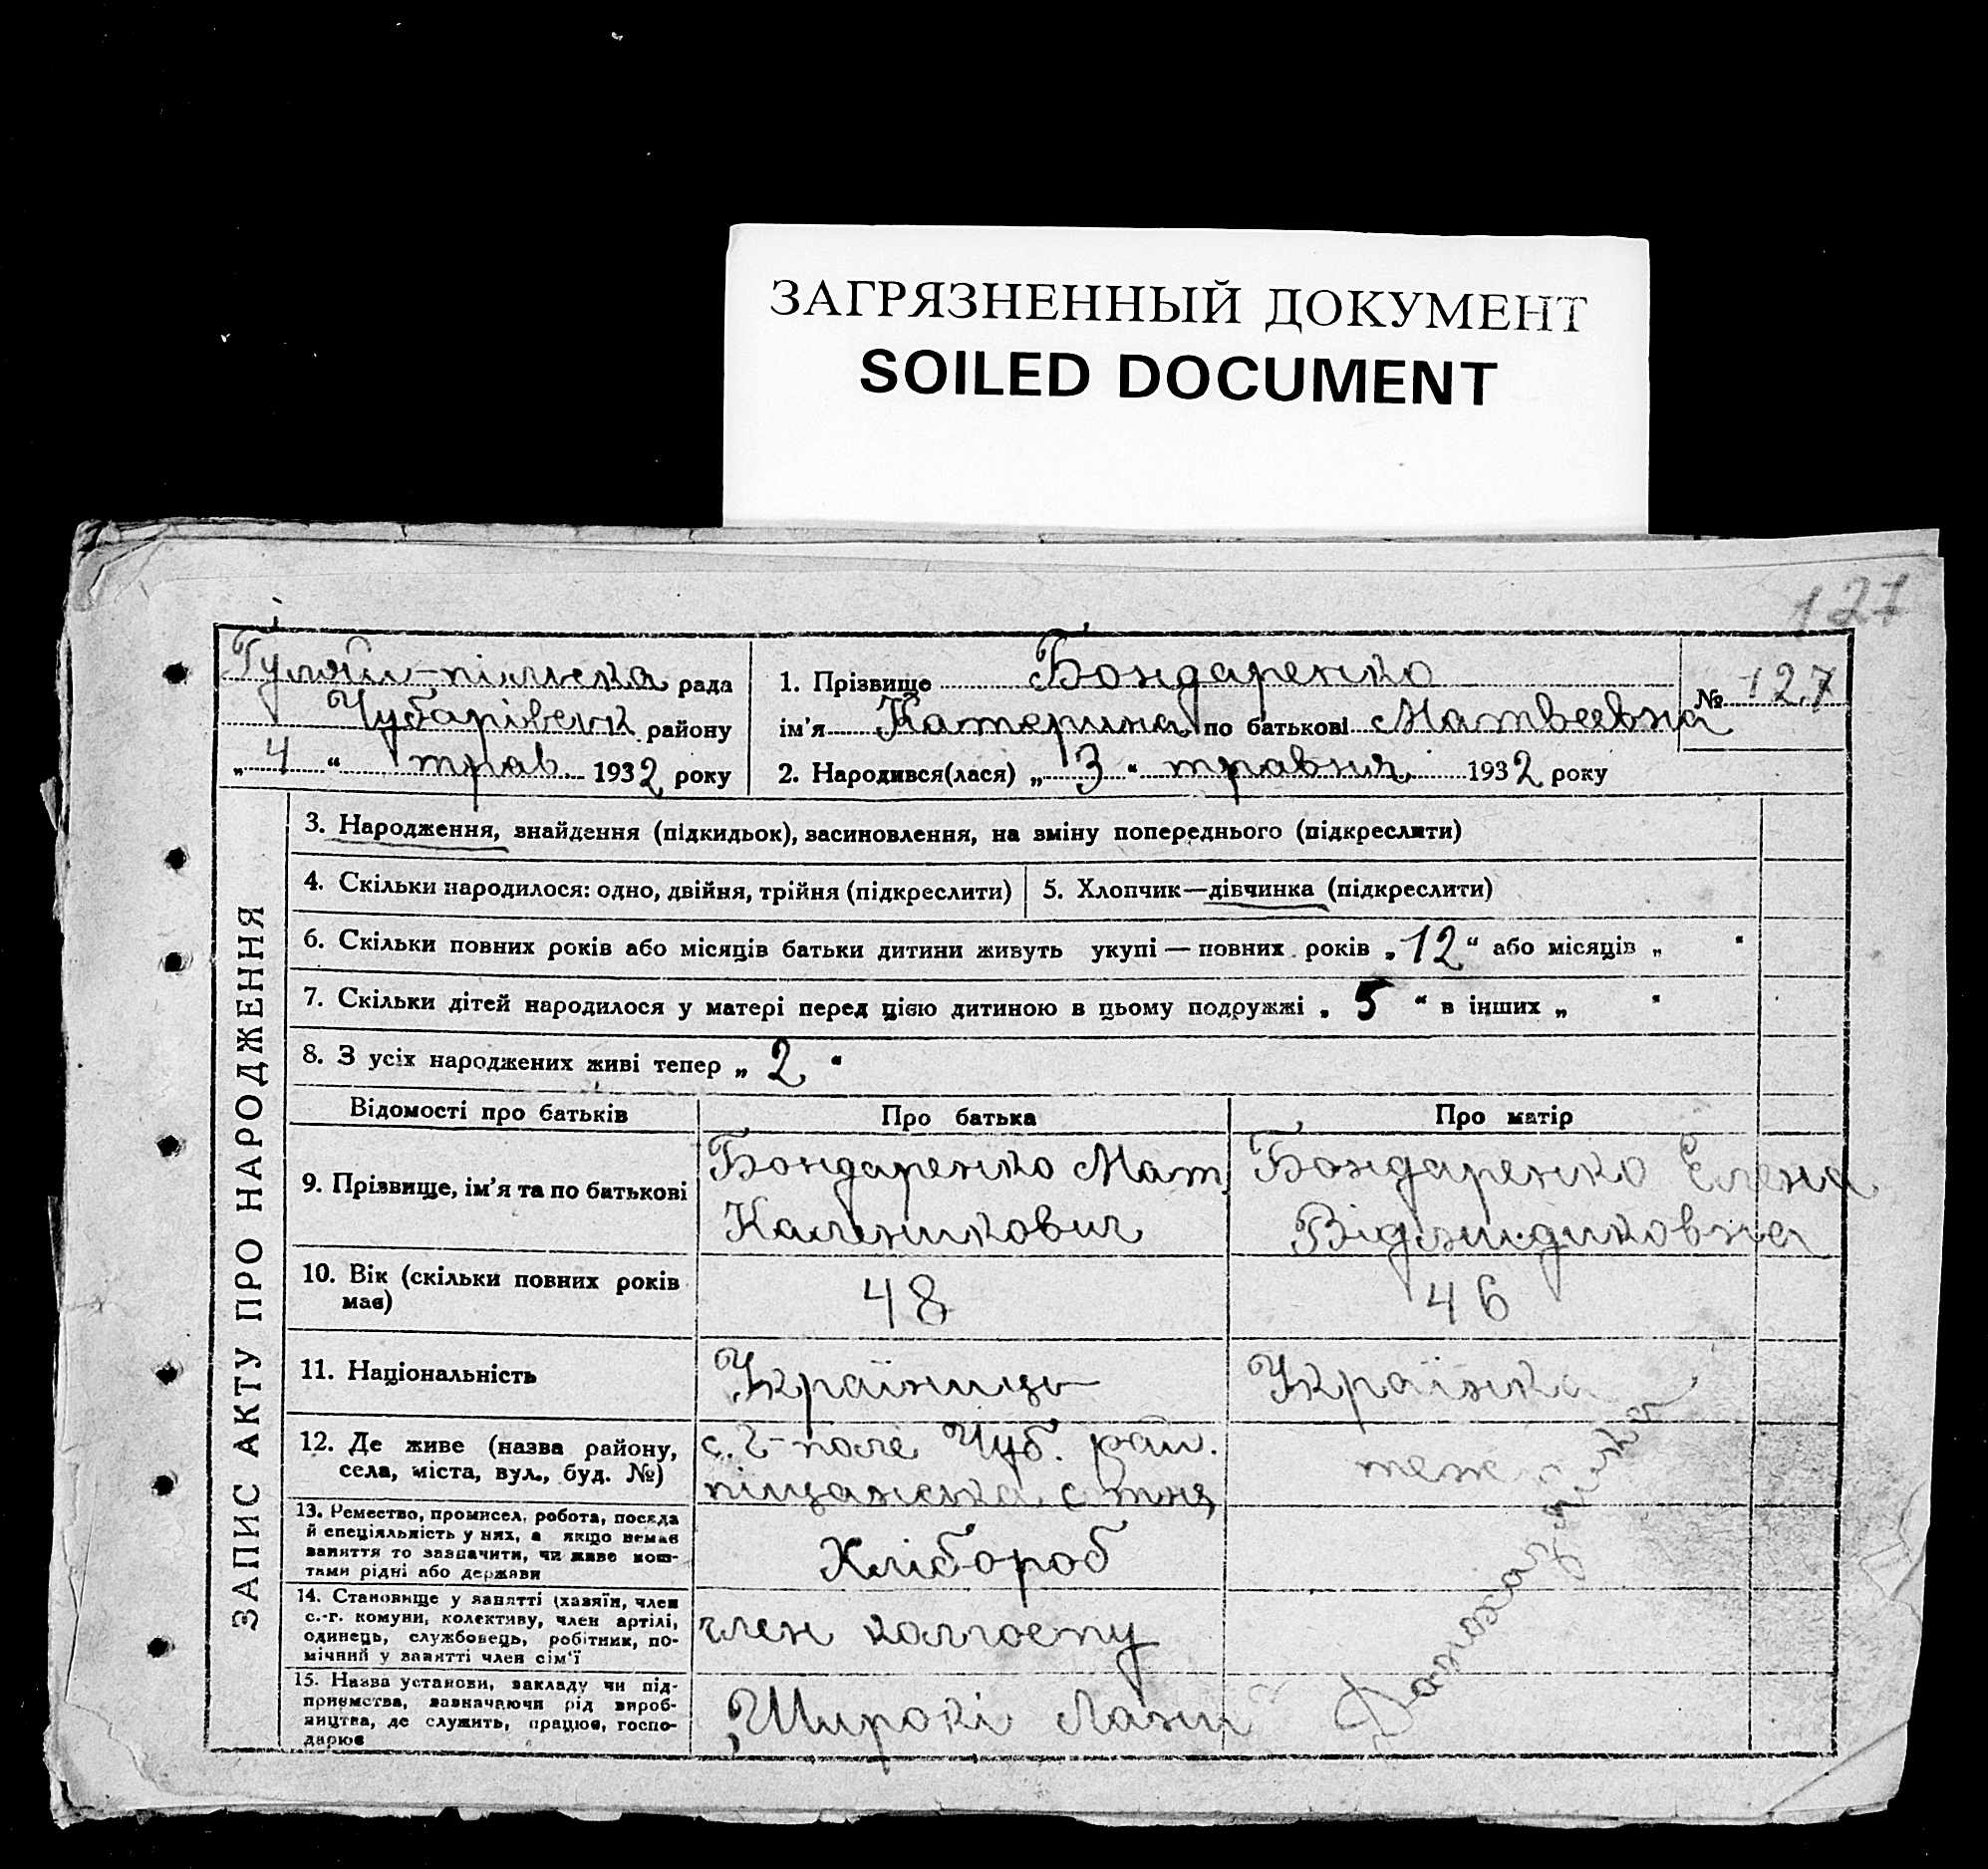 ЗАГРЯЗНЕННЫЙ ДОКУМЕНТ
SOILED DOCUMENT
127
Гуляй-пільська рада
Чубарівськ району
„ 4 “ трав. 1932 року
1. Прізвище Бондаренко
ім’я Катерина по батькові Матвеевна
2. Народився(лася) „ 3 “ травня 1932 року
№ 127
ЗАПИС АКТУ ПРО НАРОДЖЕННЯ
3. Народження, знайдення (підкидьок), засиновлення, на зміну попереднього (підкреслити)
4. Скільки народилося: одно, двійня, трійня (підкреслити)
5. Хлопчик—дівчинка (підкреслити)
6. Скільки повних років або місяців батьки дитини живуть укупі — повних років „ 12 “ або місяців „ “
7. Скільки дітей народилося у матері перед цією дитиною в цьому подружжі „ 5 “ в інших „ “
8. З усіх народжених живі тепер „ 2 “
Відомості про батьків
Про батька
Про матір
9. Прізвище, ім’я та по батькові
Бондаренко Мат.
Каленикович
Бондаренко Елена
10. Вік (скільки повних років
має)
48
46
11. Національність
Україниць
Українка
12. Де живе (назва району,
села, міста, вул., буд. №)
с. Г-поле Чуб. рай.
піщанська с-тня
теж
13. Ремество, промисел, робота, посада
й спеціяльність у них, а якщо немає
заняття то зазначити, чи живе кош-
тами рідні або держави
Хлібороб
14. Становище у занятті (хазяїн, член
с.-г. комуни, колективу, член артілі,
одинець, службовець, робітник, по-
мічний у занятті член сім’ї
член колгоспу
15. Назва установи, закладу чи під-
приємства, зазначаючи рід вироб-
ництва, де служить, працює, госпо-
дарює
„Широкі Лани
Домохазяйка